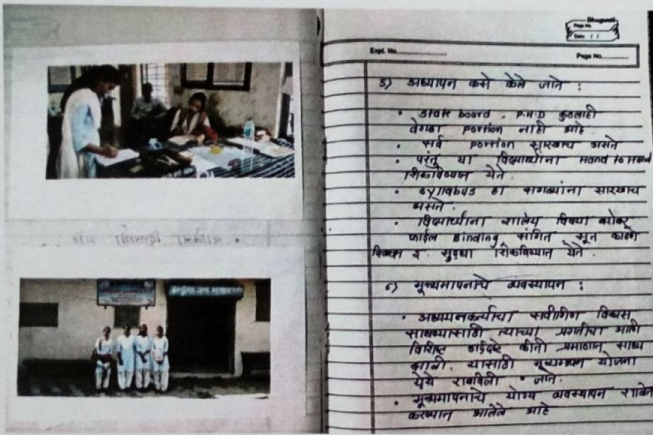 Bhagwati
Page No.
Date: / /
Expt. No.
Page No.
5) अध्यापन कसे केले जाते :
• State board, P.H.D कुठलाही
वेगळा portion नाही आहे.
• सर्व portion सारखाच असतो
• परंतु या विद्यार्थ्यांना Hand to Hand
शिकविण्यात येते.
• syllabus हा सगळ्यांना सारखाच
असतो.
• विद्यार्थ्यांना शालेय विषया बरोबर
फाईल Binding संगित सूत काढणे
इ. सुद्धा शिकविण्यात येते.
६) मूल्यमापनाचे व्यवस्थापन :
• अध्ययनकर्त्याचा सर्वांगिण विकास
साधण्यासाठी त्याच्या प्रगतीचा आणि
विशिष्ट उद्दिष्टे कीती प्रमाणात साध्य
झाली. यासाठी मूल्यमापन योजना
येथे राबविली जाते.
• मूल्यमापनाचे योग्य व्यवस्थापन
करण्यात आलेले आहे